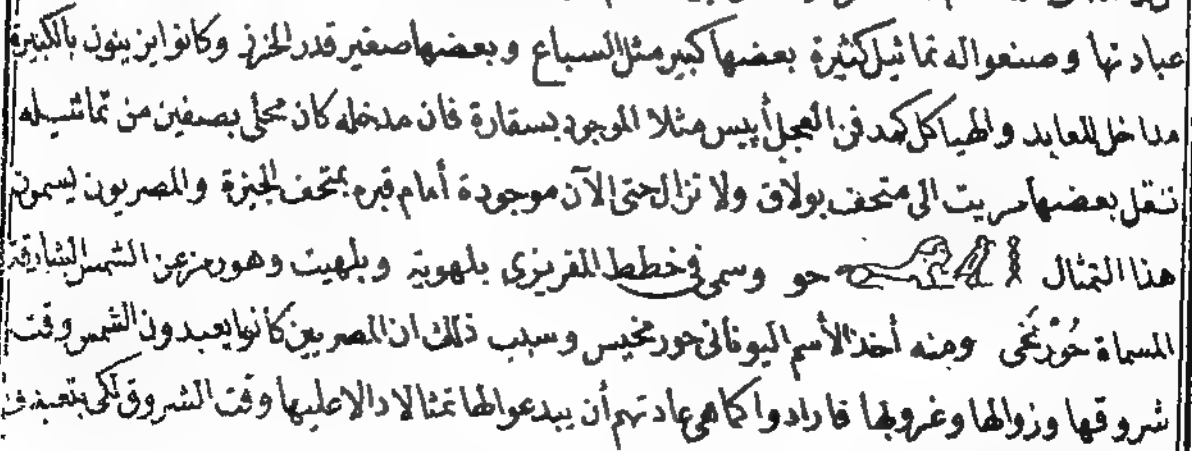 عبادتها وصنعوا له تماثيل كثيرة بعضها كبير مثل السباع وبعضها صغير قدر الخزنى وكانوا يزينون بالكبيرة
مداخل المعابد والهياكل كمدفن العجل أبيس مثلا الموجود بسقارة فان مدخله كان محلى بصفين من تماثيله
نقل بعضها مريت الى متحف بولاق ولا تزال حتى الآن موجودة أمام قبره بمتحف الجيزة والمصريون يسمون
هذا التمثال حو وسمى فى خطط المقريزى بلهوية وبلهيت وهو رمز عن الشمس الشارقة
المسماة حُورْنَخَى ومنه أخذ الأسم اليونانى حورمخيس وسبب ذلك ان المصريين كانوا يعبدون الشمس وقت
شروقها وزوالها وغروبها فارادوا كما هى عادتهم أن يبدعوا لها تمثالا دالا عليها وقت الشروق لكى